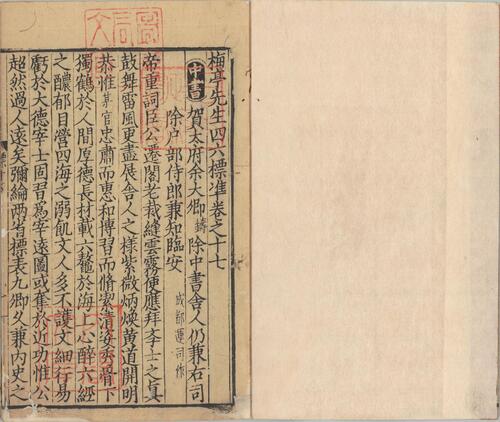 梅亭先生四六標准卷之十七
中書
賀太府余大卿鑄除中書舍人仍兼右司
除户部侍郎兼知臨安 成都運司作
帝重詞臣公遷閣老裁縫雲霧便應拜李士之真
鼓舞雷風更盡展舍人之様紫微炳煥黄道開明
恭惟某官忠肅而惠和博習而脩潔清姿秀骨下
獨鶴於人間厚德長材載六鼇於海上心醉六經
之醲郁日營四海之溺飢文人多不護文細行易
虧於大德宰士固習爲宰遠圖或奪於近功惟公
超然過人遠矣彌綸兩省標表九卿久兼内史之